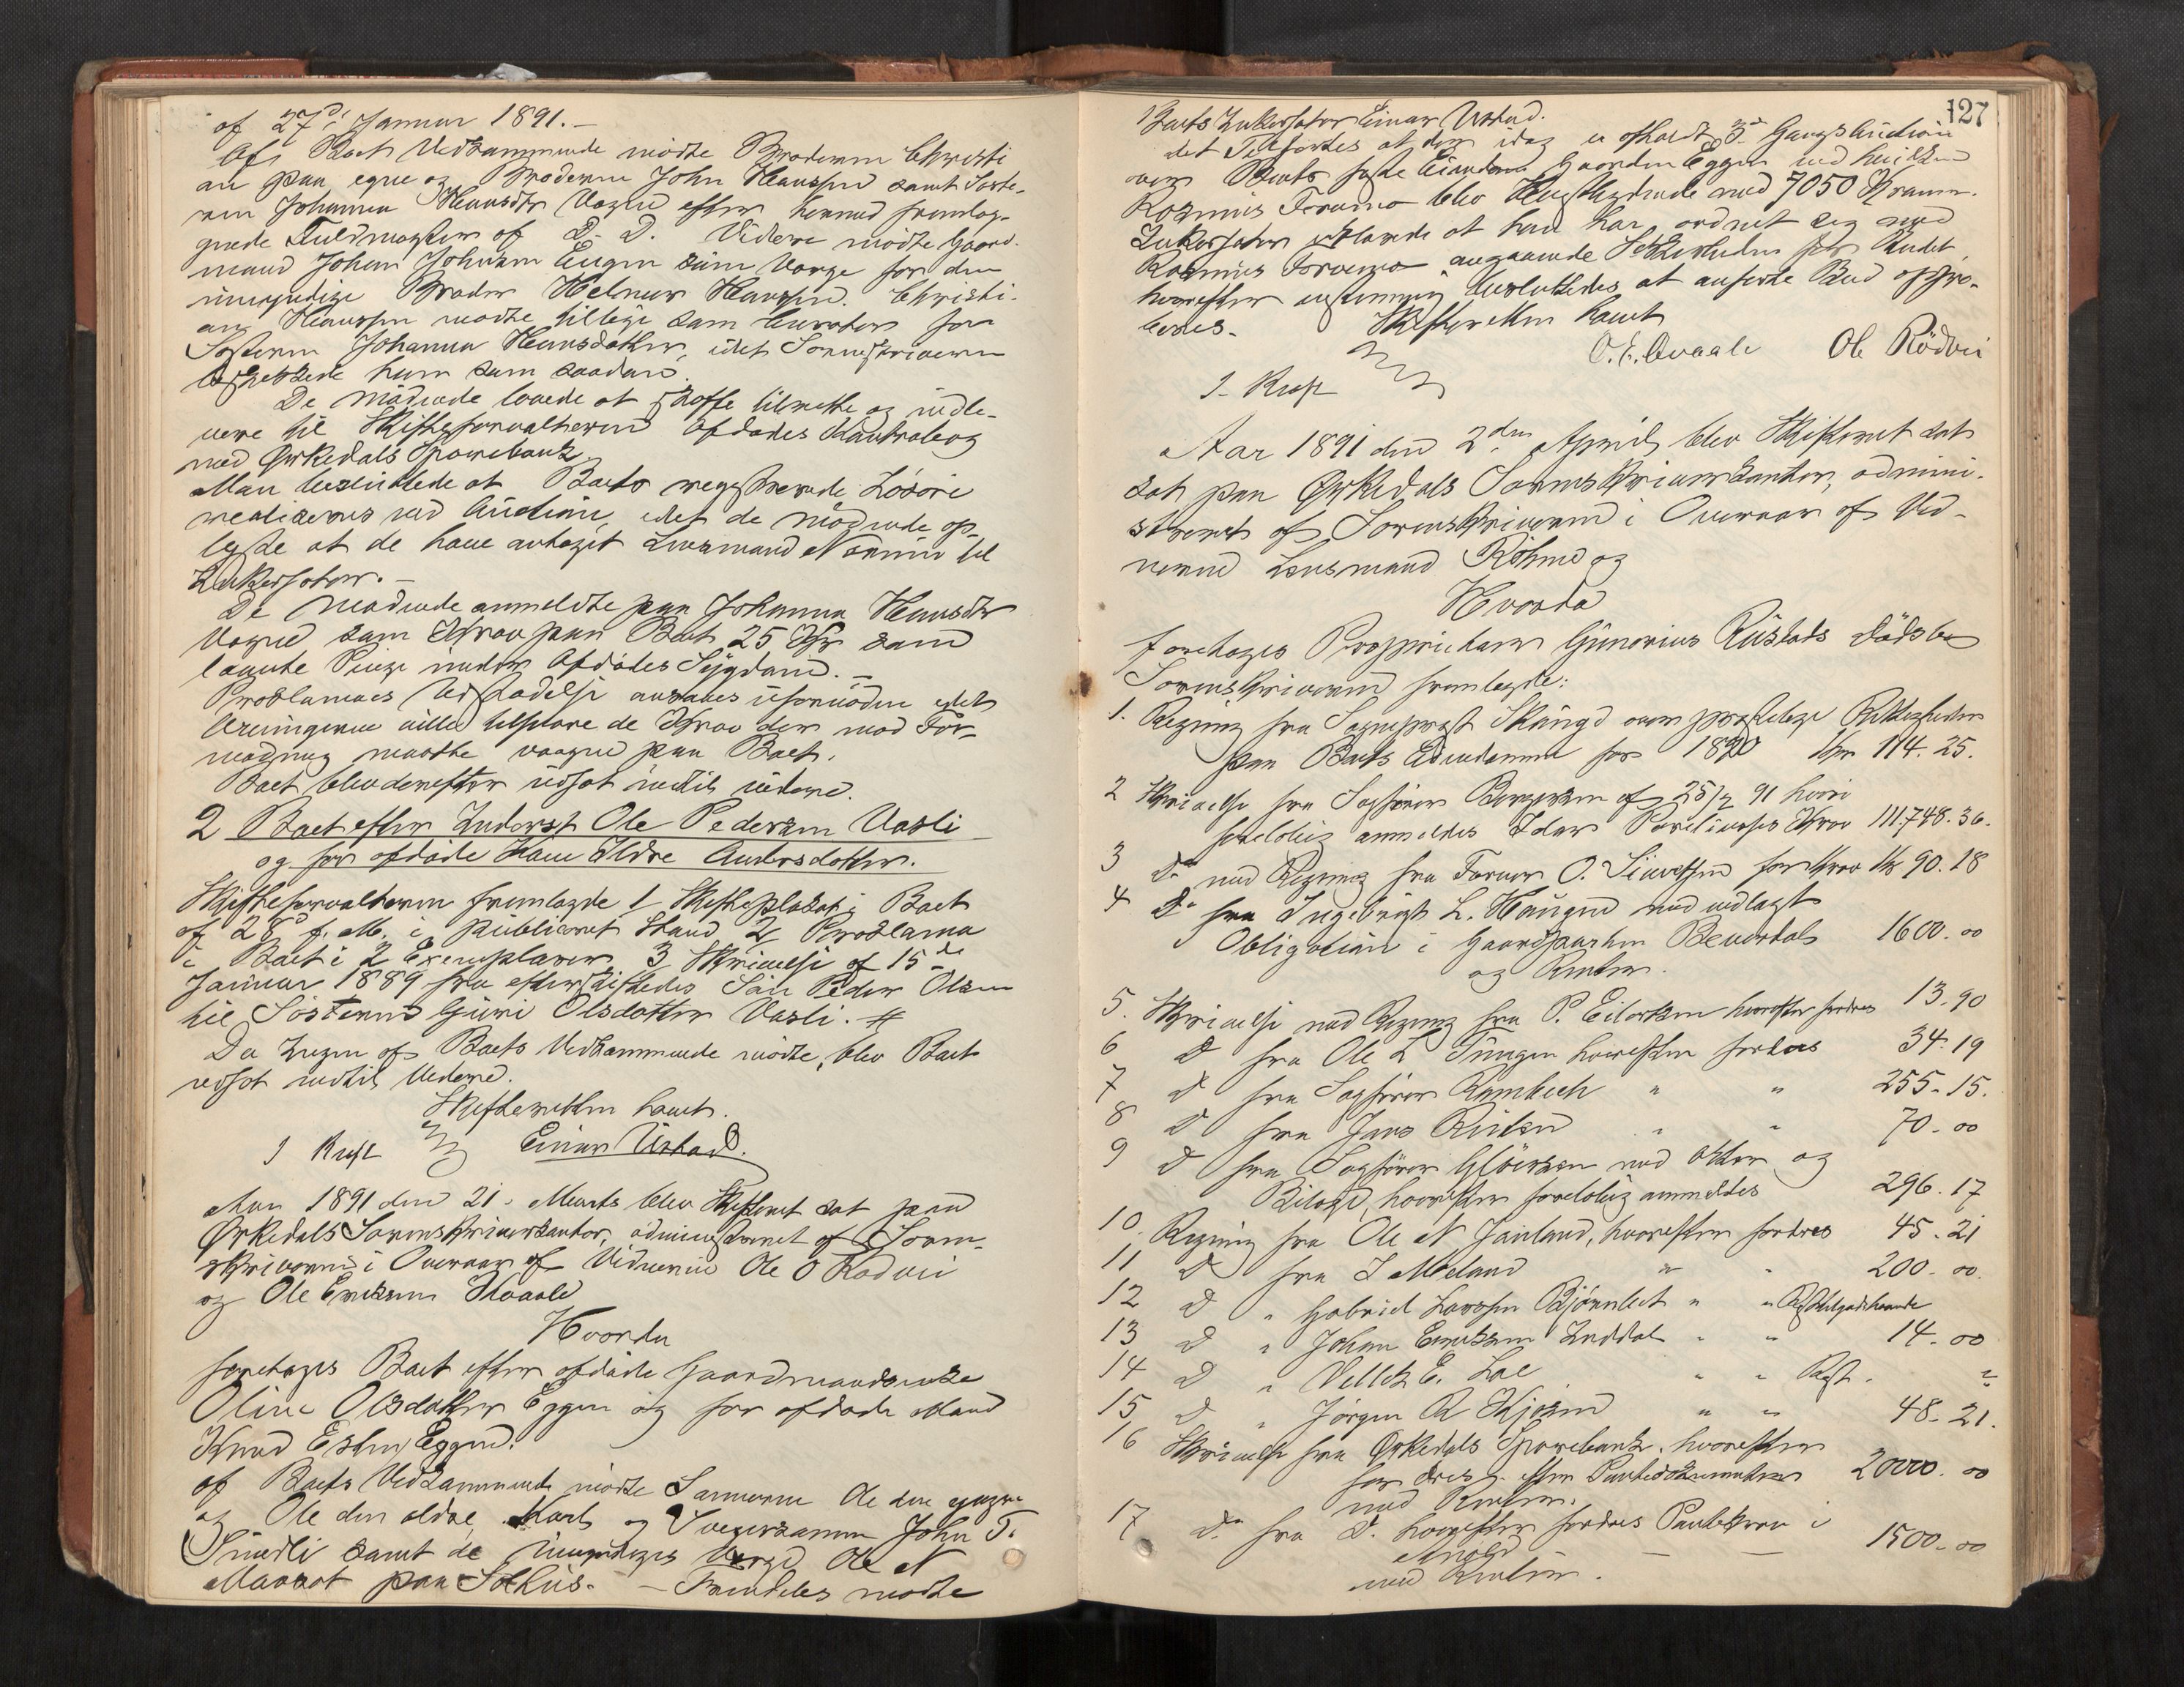 af 27de Januar 1891.-
Af Boets Vedkommende mødte Broderen Christi
an paa egne og Broderen John Hanssen samt Søste-
ren Johanna Hansdtr Vogns efter hermed fremlag-
gende Fuldmagter af D. D. Videre mødte Gaard-
mand Johan Johnsen Eugen som Værge for den
umyndige Broder Helmer Hanssen. Christi-
an Hanssen mødte tillige som Curator for
Søsteren Johanna Hansdatter, idet Sorenskriveren
beskikkede ham som saadan.
De mødende lovede at skaffe tilveie og indle-
vere til Skifteforvalteren Afdødes Contrabog
med Ørkedals Sparebank.
Man besluttede at Boets registrerede Løsøre
realiseres ved Auction, idet de mødende op-
lyste at de have antaget Lensmand til
Inkassator.-
De mødende anmeldte paa Johanna Hansdtr
Vogns som Krav paa Boet 25 Kr som
laante Penge under Afdødes Sygdom.-
Proklamas Udstædelse ansaaes ufornøden idet
Arvingerne ville tilsvare de Krav der mod For-
modning maatte paa Boet.
Boet blev derefter udsat indtil videre.
2 Boet efter Inderst Ole Pedersen Vasli
og før afdøde Kone Ildre Andersdatter.
Skifteforvalteren fremlagde 1 Skifteplakat i Boet
af 28 f. M. i publiceret Stand 2 Proklama
i Boet i 2 Exemplarer 3 Skrivelse af 15de
Januar 1889 fra efterskiftedes Søn Peder Olsen
til Søsteren Guri Olsdatter Vasli. #
Da Ingen af Boets Vedkommende mødte, blev Boet
udsat indtil Videre.
Skifteretten hævet.
J. Rust Einar Ustad.
Aar 1891 den 21. Marts blev Skifteret sat paa
Ørkedals Sorenskriverkontor, administreret af Soren-
skriveren i Overvær af Vidnerne Ole O Rødvei
og Ole Eriksen Kvaale
Hvorda
foretages Boet efter afdøde Gaardmandsenke
Oline Olsdatter Eggen og før afdøde Mand
Knud Estensen Eggen.
Af Boets Vedkommende mødte Sønnerne Ole den yngre
og Ole den ældre, Karl og Svigersønnen John T.
Smedli samt de umyndiges Værge Ole N
paa Solhus. - Fremdeles mødte
127
Boets Inkassator Einar Ustad.
det Tilføres at der idag er afholdt 3die Gangs Auction
over Boets faste Eiendom Gaarden Eggen ved hvilken
Rasmus blev Høistbydende med 7050 Kroner.
Inkassator erklærede at han har ordnet sig med
Rasmus angaaende Sikkerheden for Budet,
hvorefter enstemmig besluttedes at anførte Bud appro-
beres.
Skifteretten hævet
J. Rust O. E. Kvaale Ole Rødvei
Aar 1891 den 2den April blev Skifteret sat
sat paa Ørkedals Sorenskriverkontor, admini-
streret af Sorenskriveren i Overvær af Vid-
nerne Lensmand Röhme og
Hvorda
foretages Proprietær Gunerius Rustads Dødsbo
Sorenskriveren fremlagde:
1. Regning fra Sogneprest Skaugd over præstelige Rettigheder
paa Boets Eiendomme for 1890 Kr 114.25.
2 Skrivelse fra Sagfører Borgersen af 25/2 91 hvori
foreløbig anmeldes Krav 111.748.36.
3 Do med Regning fra Farver O. Sivertsen for Krav Kr 90.18
4 Do fra Ingebrigt L. Haugen med vedlagt
Obligation i Gaardparten 1600.00
og Renter.
5. Skrivelse med Regning fra P. Eilertsen hvorefter fordres 13.90
6 D fra Ole L Tungen hvorefter fordres 34.19
7 D fra Sagfører Rambech " " 255-15.
8 D fra Jens " " 70-00
9 D fra Sagfører Gløersen med Atter og
Bilage, hvorefter foreløbig anmeldes 296.17
10. Regning fra Ole N Jørland, hvorefter fordres 45.21
11 D fra S Meland " " 200-00.
12 D " Gabriel Larssen Bjørnbet " "
13 D " Johan Eriksen Inddal " " 14-00
14 D " E. Loe " " Rest.
15 D " Jørgen R Kjøren " " 48-21.
16 Skrivelse fra Ørkedals Sparebank, hvorefter
fordres efter Pantedokumenter 20000.00
med Renter.
17 Do fra D. hvorefter fordres Pantekrav i
1500-00
med Renter.